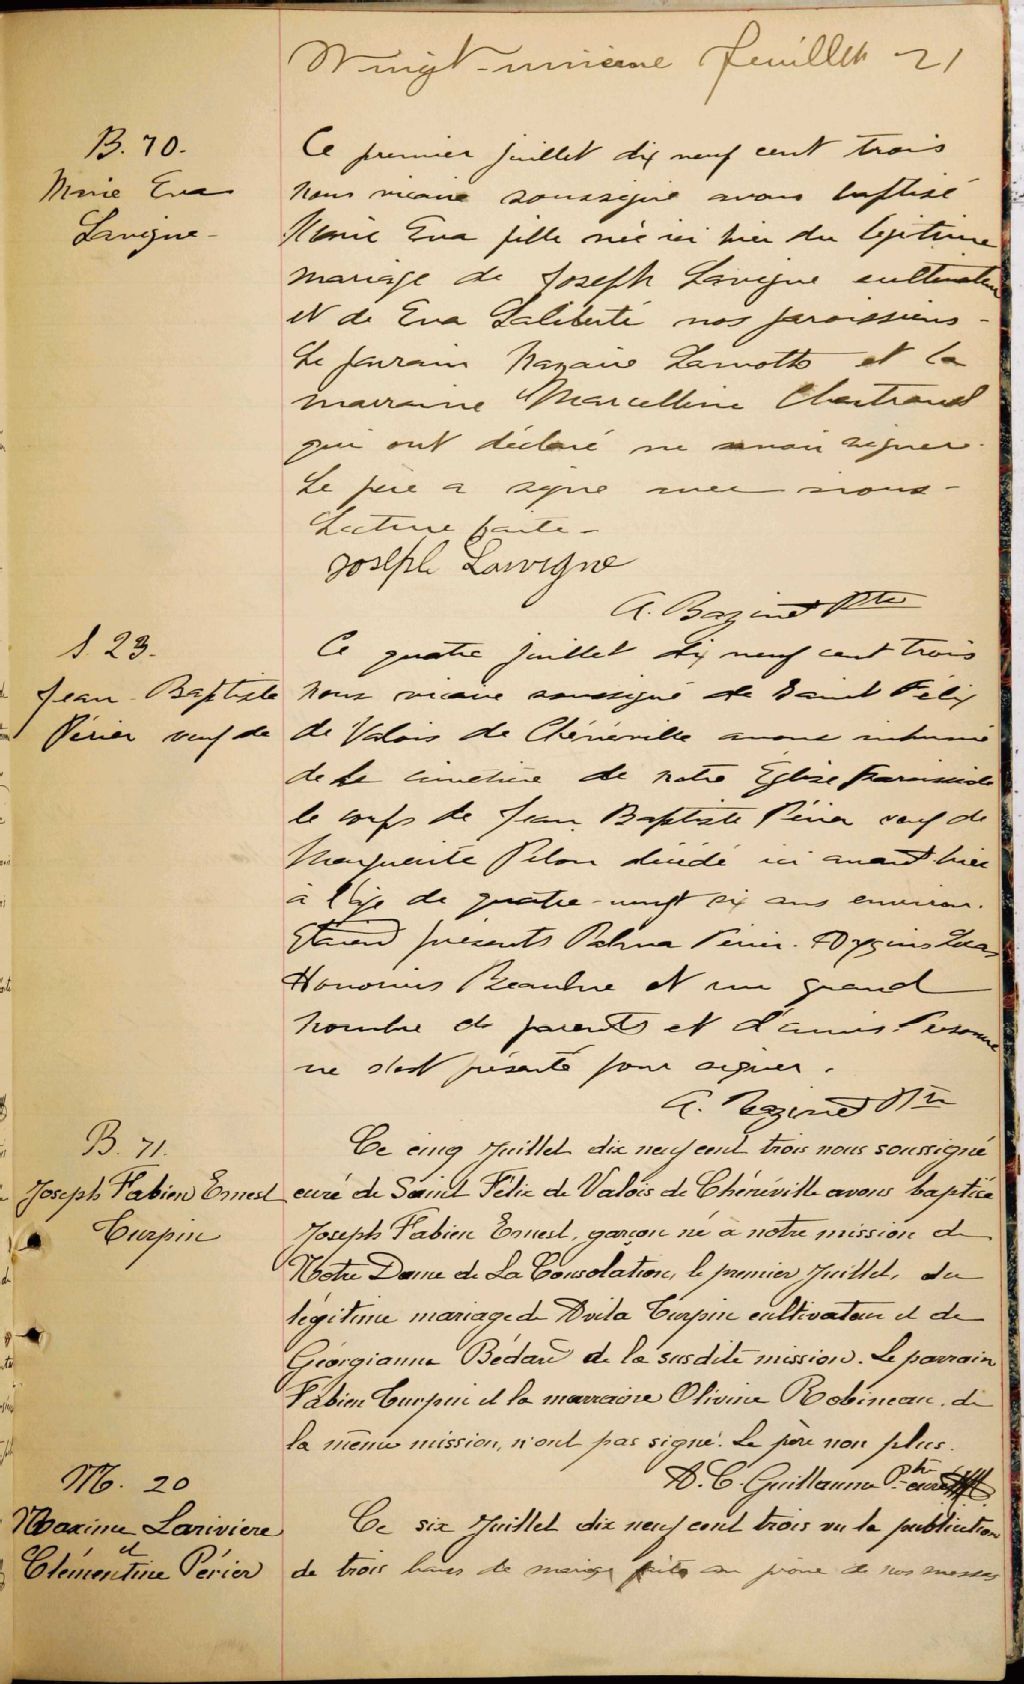 Vingt-unième feuillet 21
B. 70.
Marie Eva
Lavigne -
Ce premier juillet dix neuf cent trois
nous vicaire soussigné avons baptisé
Marie Eva fille née ici hier du légitime
mariage de Joseph Lavigne cultivateur
et de Eva Laliberté nos paroissiens -
Le parrain Nazaire Lamothe et la
marraine Marcelline Chartrand
qui ont déclaré ne savoir signer.
Le père a signé avec nous -
Lecture faite -
Joseph Lavigne
A. Bazinet Ptre
S. 23.
Jean-Baptiste
Périer veuf de
Ce quatre juillet dix neuf cent trois
nous vicaire soussigné de Saint Félix
de Valois de Chénéville avons inhumé
de le cimetière de notre Église paroissiale
le corps de Jean Baptiste Périer veuf de
Marguerite Pilon décédé ici avant hier
à l'âge de quatre-vingt six ans environ.
Etaient présents Palma Périer.
Honorius Beaulne et un grand
nombre de parents et d'amis. Personne
ne s'est présenté pour signer.
A. Bazinet Ptre
B. 71.
Joseph Fabien Ernest
Turpin
Ce cinq Juillet dix neuf cent trois nous soussigné
curé de Saint Félix de Valois de Chénéville avons baptisé
Joseph Fabien Ernest, garçon né à notre mission de
Notre Dame de La Consolation, le premier Juillet, du
légitime mariage de Avila Turpin cultivateur et de
Géorgianna Bédard de la susdite mission. Le parrain
Fabien Turpin et la marraine Olivine Robineau, de
la même mission, n'ont pas signé. Le père non plus.
A. C. Guillaume Ptre curé
M. 20
Maxime Lariviere
et
Clémentine Périer
Ce six Juillet dix neuf cent trois vu la publication
de trois bans de mariage faite au prône de nos messes